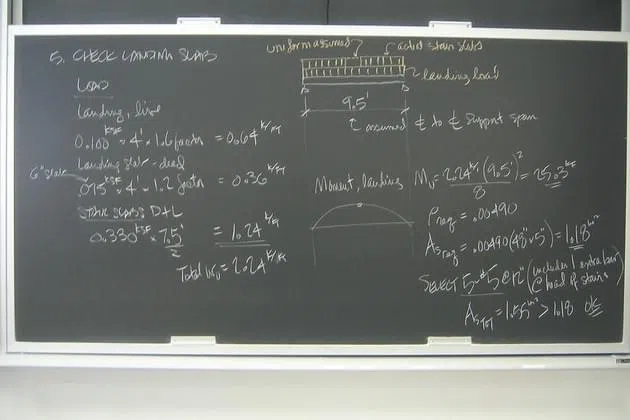 5. CHECK LANDING SLABS
LOAD
Landing, live
0.100 KSF × 4' × 1.6 factor = 0.64 K/FT
Landing slab - dead
6" slab
.075 KSF × 4' × 1.2 factor = 0.36 K/FT
STAIR SLABS D+L
0.330 KSF × 7.5'/2 = 1.24 K/FT
Total Wu = 2.24 K/FT
uniform assumed
actual stair slabs
landing load
9.5'
assumed ℄ to ℄ support span
Moment, landing
Mu = 2.24 K/' (9.5')²/8 = 25.3 'K
ρreq = .00490
As req = .00490 (48" × 5") = 1.18 in²
SELECT 5-#5 @ 12" (includes 1 extra bar
@ head of stairs)
As TOT = 1.55 in² > 1.18 OK